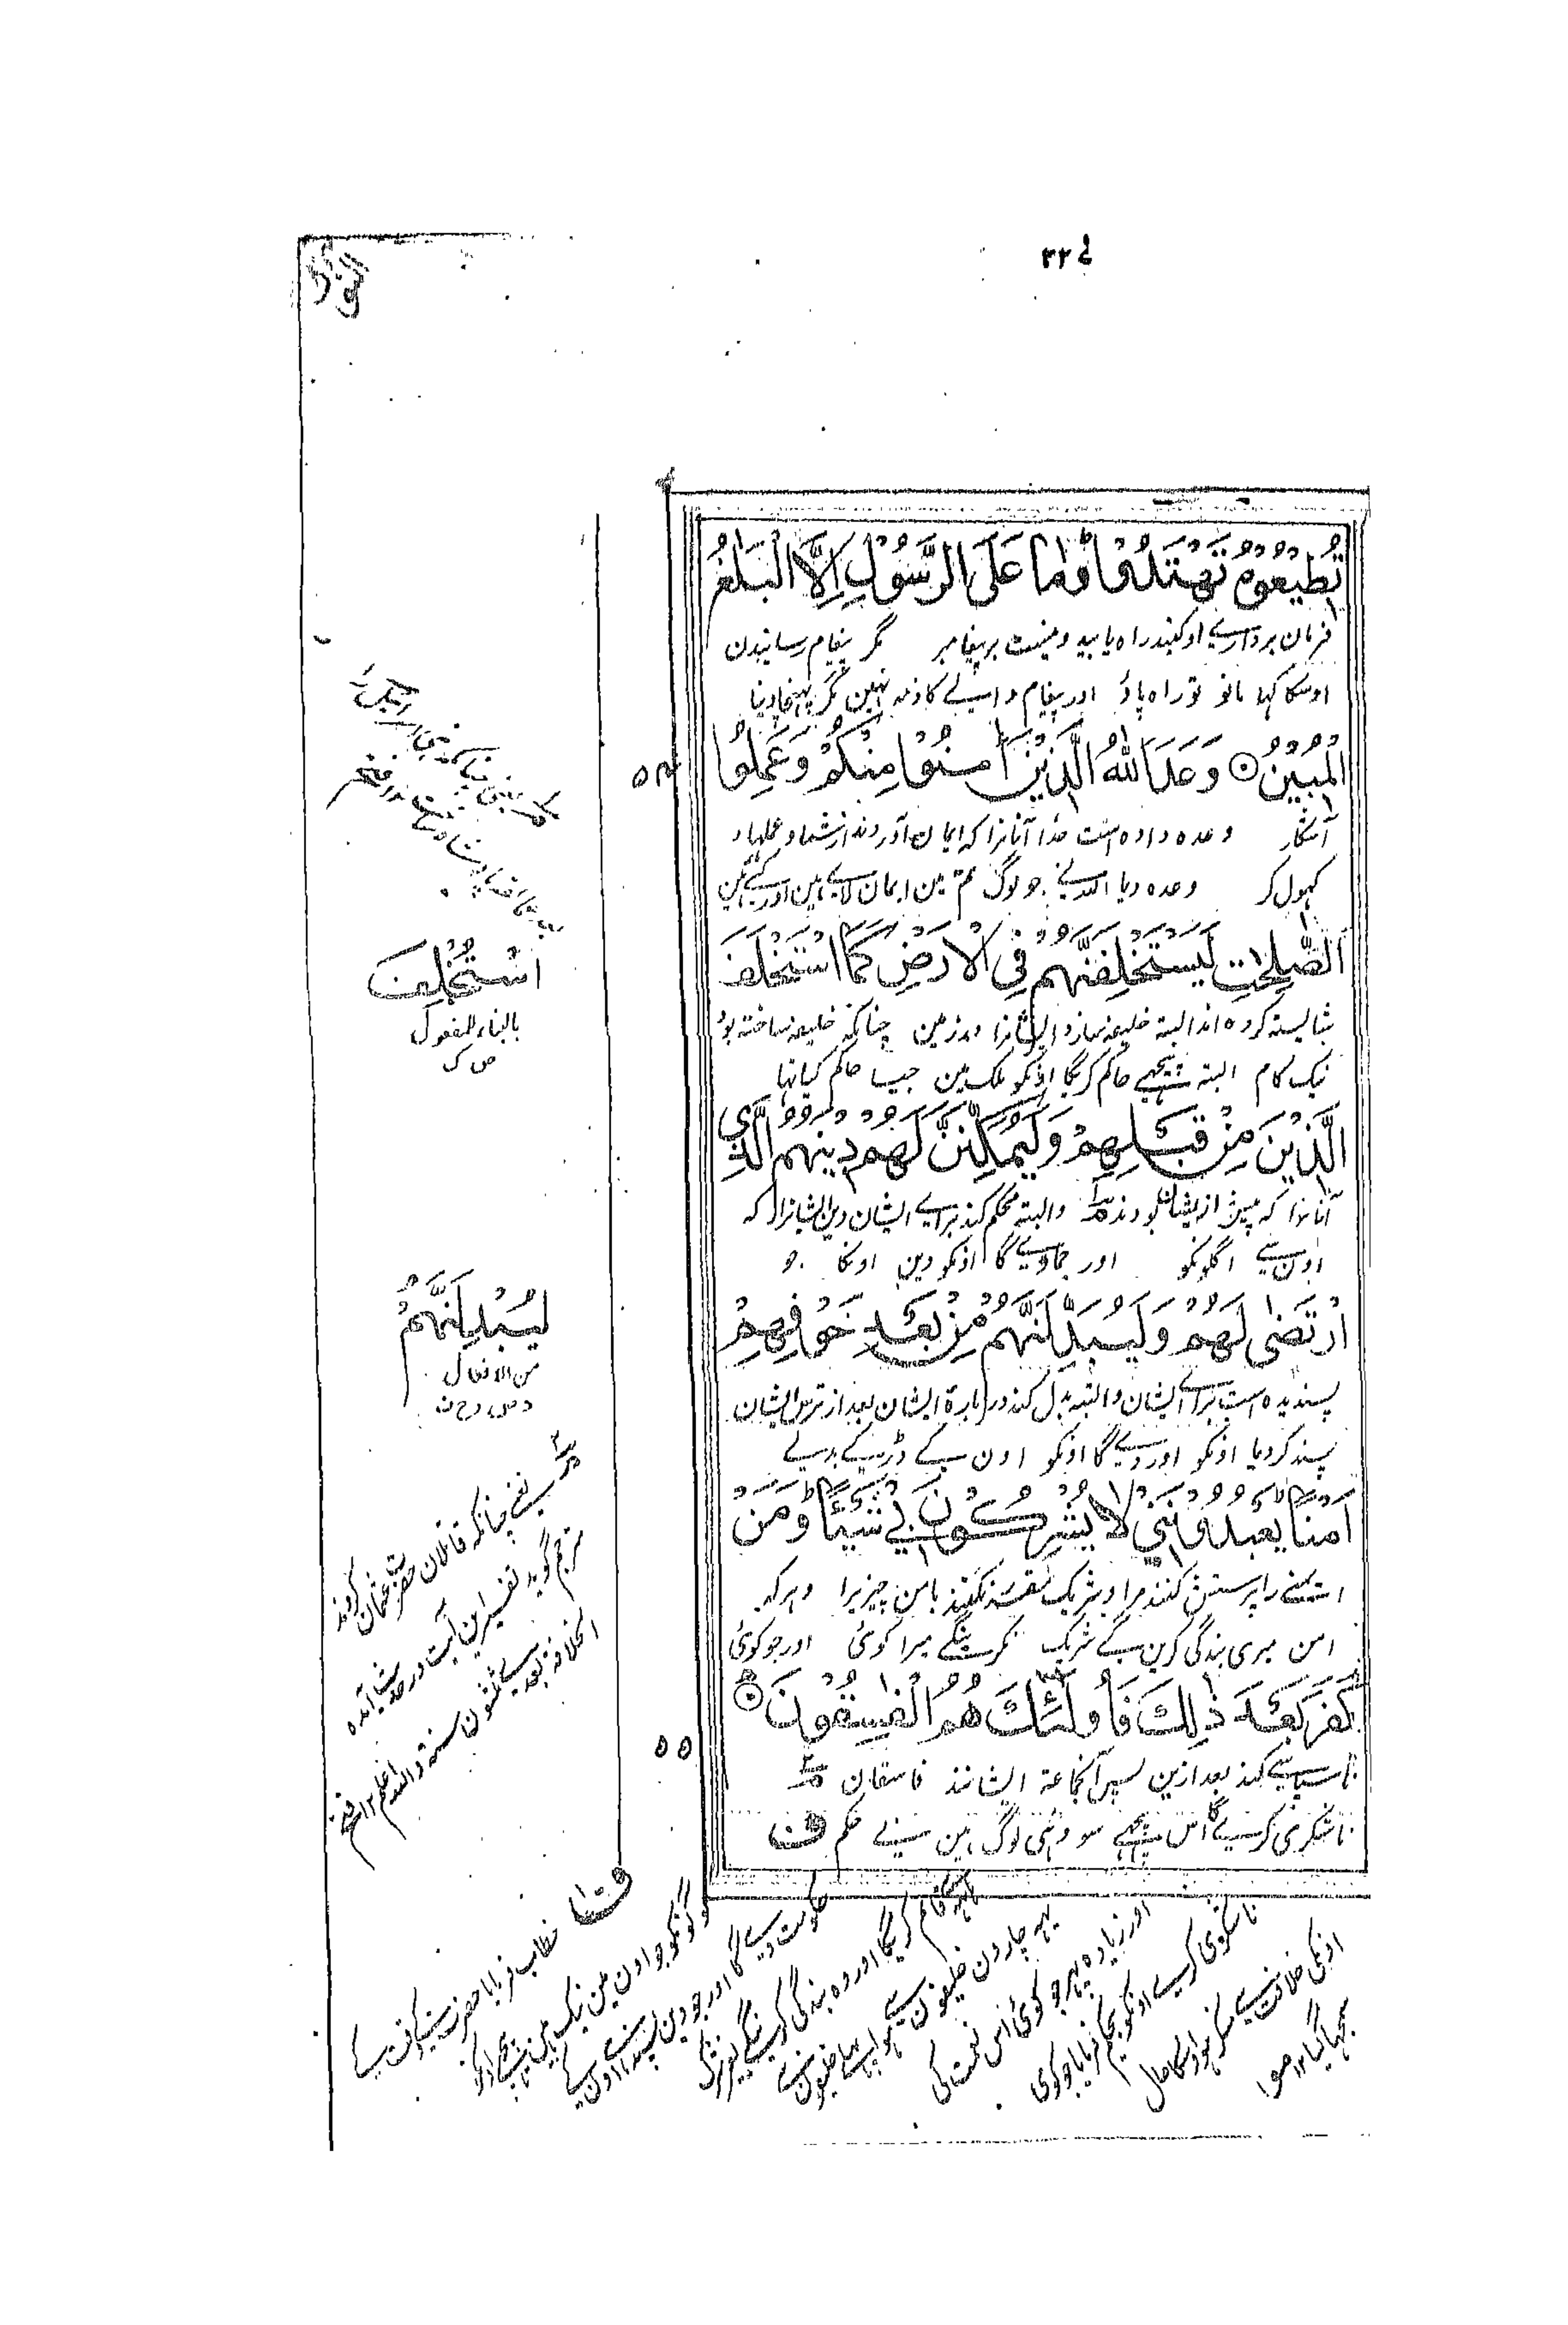 تُطِيْعُوْهُ تَهْتَدُوْا ؕ وَمَا عَلَى الرَّسُوْلِ اِلَّا الْبَلٰغُ
فرمان برداری او کنید راه یابید و نیست بر پیغامبر مگر پیغام رسانیدن
اوسکا کہا مانو تو راہ پاؤ اور پیغام والے کا ذمہ نہین مگر پہنچا دینا
الْمُبِيْنُ ۝ وَعَدَ اللّٰهُ الَّذِيْنَ اٰمَنُوْا مِنْكُمْ وَعَمِلُوا
۵۴
آشکار وعده داده است خدا آنانرا که ایمان آوردند از شما و عملهای
کہول کر وعدہ دیا اللہ نے جو لوگ تم مین ایمان لائے ہین اور کئے ہین
الصّٰلِحٰتِ لَيَسْتَخْلِفَنَّهُمْ فِي الْاَرْضِ كَمَا اسْتَخْلَفَ
شایسته کرده اند البته خلیفه سازد ایشانرا در زمین چنانکه خلیفه ساخته بود
نیک کام البتہ پیچھے حاکم کریگا اونکو ملک مین جیسا حاکم کیا تہا
الَّذِيْنَ مِنْ قَبْلِهِمْ وَلَيُمَكِّنَنَّ لَهُمْ دِيْنَهُمُ الَّذِي
آنانرا که پیش از ایشان بودند والبته محکم کند برای ایشان دین ایشانرا که
اون سے اگلونکو اور جمادے گا اونکو دین اونکا جو
ارْتَضٰى لَهُمْ وَلَيُبَدِّلَنَّهُمْ مِنْ بَعْدِ خَوْفِهِمْ
پسندیده است برای ایشان والبته بدل کند در بارۀ ایشان بعد از ترس ایشان
پسند کردیا اونکو اور دے گا اونکو اون کے ڈر کے بدلے
اَمْنًا ؕ يَعْبُدُوْنَنِيْ لَا يُشْرِكُوْنَ بِيْ شَيْئًا ؕ وَمَنْ
ایمنی را پرستش کنند مرا و شریک مقرر نکنند با من چیزیرا و هر که
امن میری بندگی کرین گے شریک نکرینگے میرا کوئی اور جو کوئی
كَفَرَ بَعْدَ ذٰلِكَ فَاُولٰٓئِكَ هُمُ الْفٰسِقُوْنَ ۝
۵۵
ناسپاسی کند بعد ازین پس آنجماعة ایشانند فاسقان
ناشکری کرے گا اس پیچھے سو وہی لوگ ہین بے حکم ف
اسْتُخْلِفَ
بالبناء للمفعول
ص ک
لَيُبْدِلَنَّهُمْ
من الافعال
یعنی چنانکه قاتلان حضرت عثمان کردند
مترجم گوید تفسیر این آیت در حدیث آمده
الخلافة بعدی ثلثون سنة والله اعلم ۱۲ فتح
ف خطاب فرمایا حضرت کے وقت کے
لوگونکو جو اون مین نیک ہین پیچھے اونکو
حکومت دے گا اور جو دین پسند ہے اون کے
قائم کریگا اور وہ بندگی کرینگے بغیر شرک
یہہ چارون خلیفون سے ہوا پہلے خلیفون سے
اور زیادہ پہر جو کوئی اس نعمت کی
ناشکری کرے اونکو بیحکم فرمایا جو کوئی
اونکی خلافت سے منکر ہوا اوسکا حال
سمجہا گیا